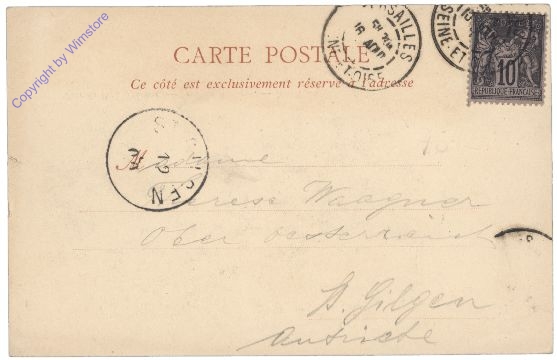 Copyright by Wimstore
CARTE POSTALE
Ce côté est exclusivement réservé à l'adresse
VERSAILLES
SEINE-ET
10
REPUBLIQUE FRANÇAISE
ST GILGEN
Madame
Waagner
Ober Oesterreich
St. Gilgen
Autriche